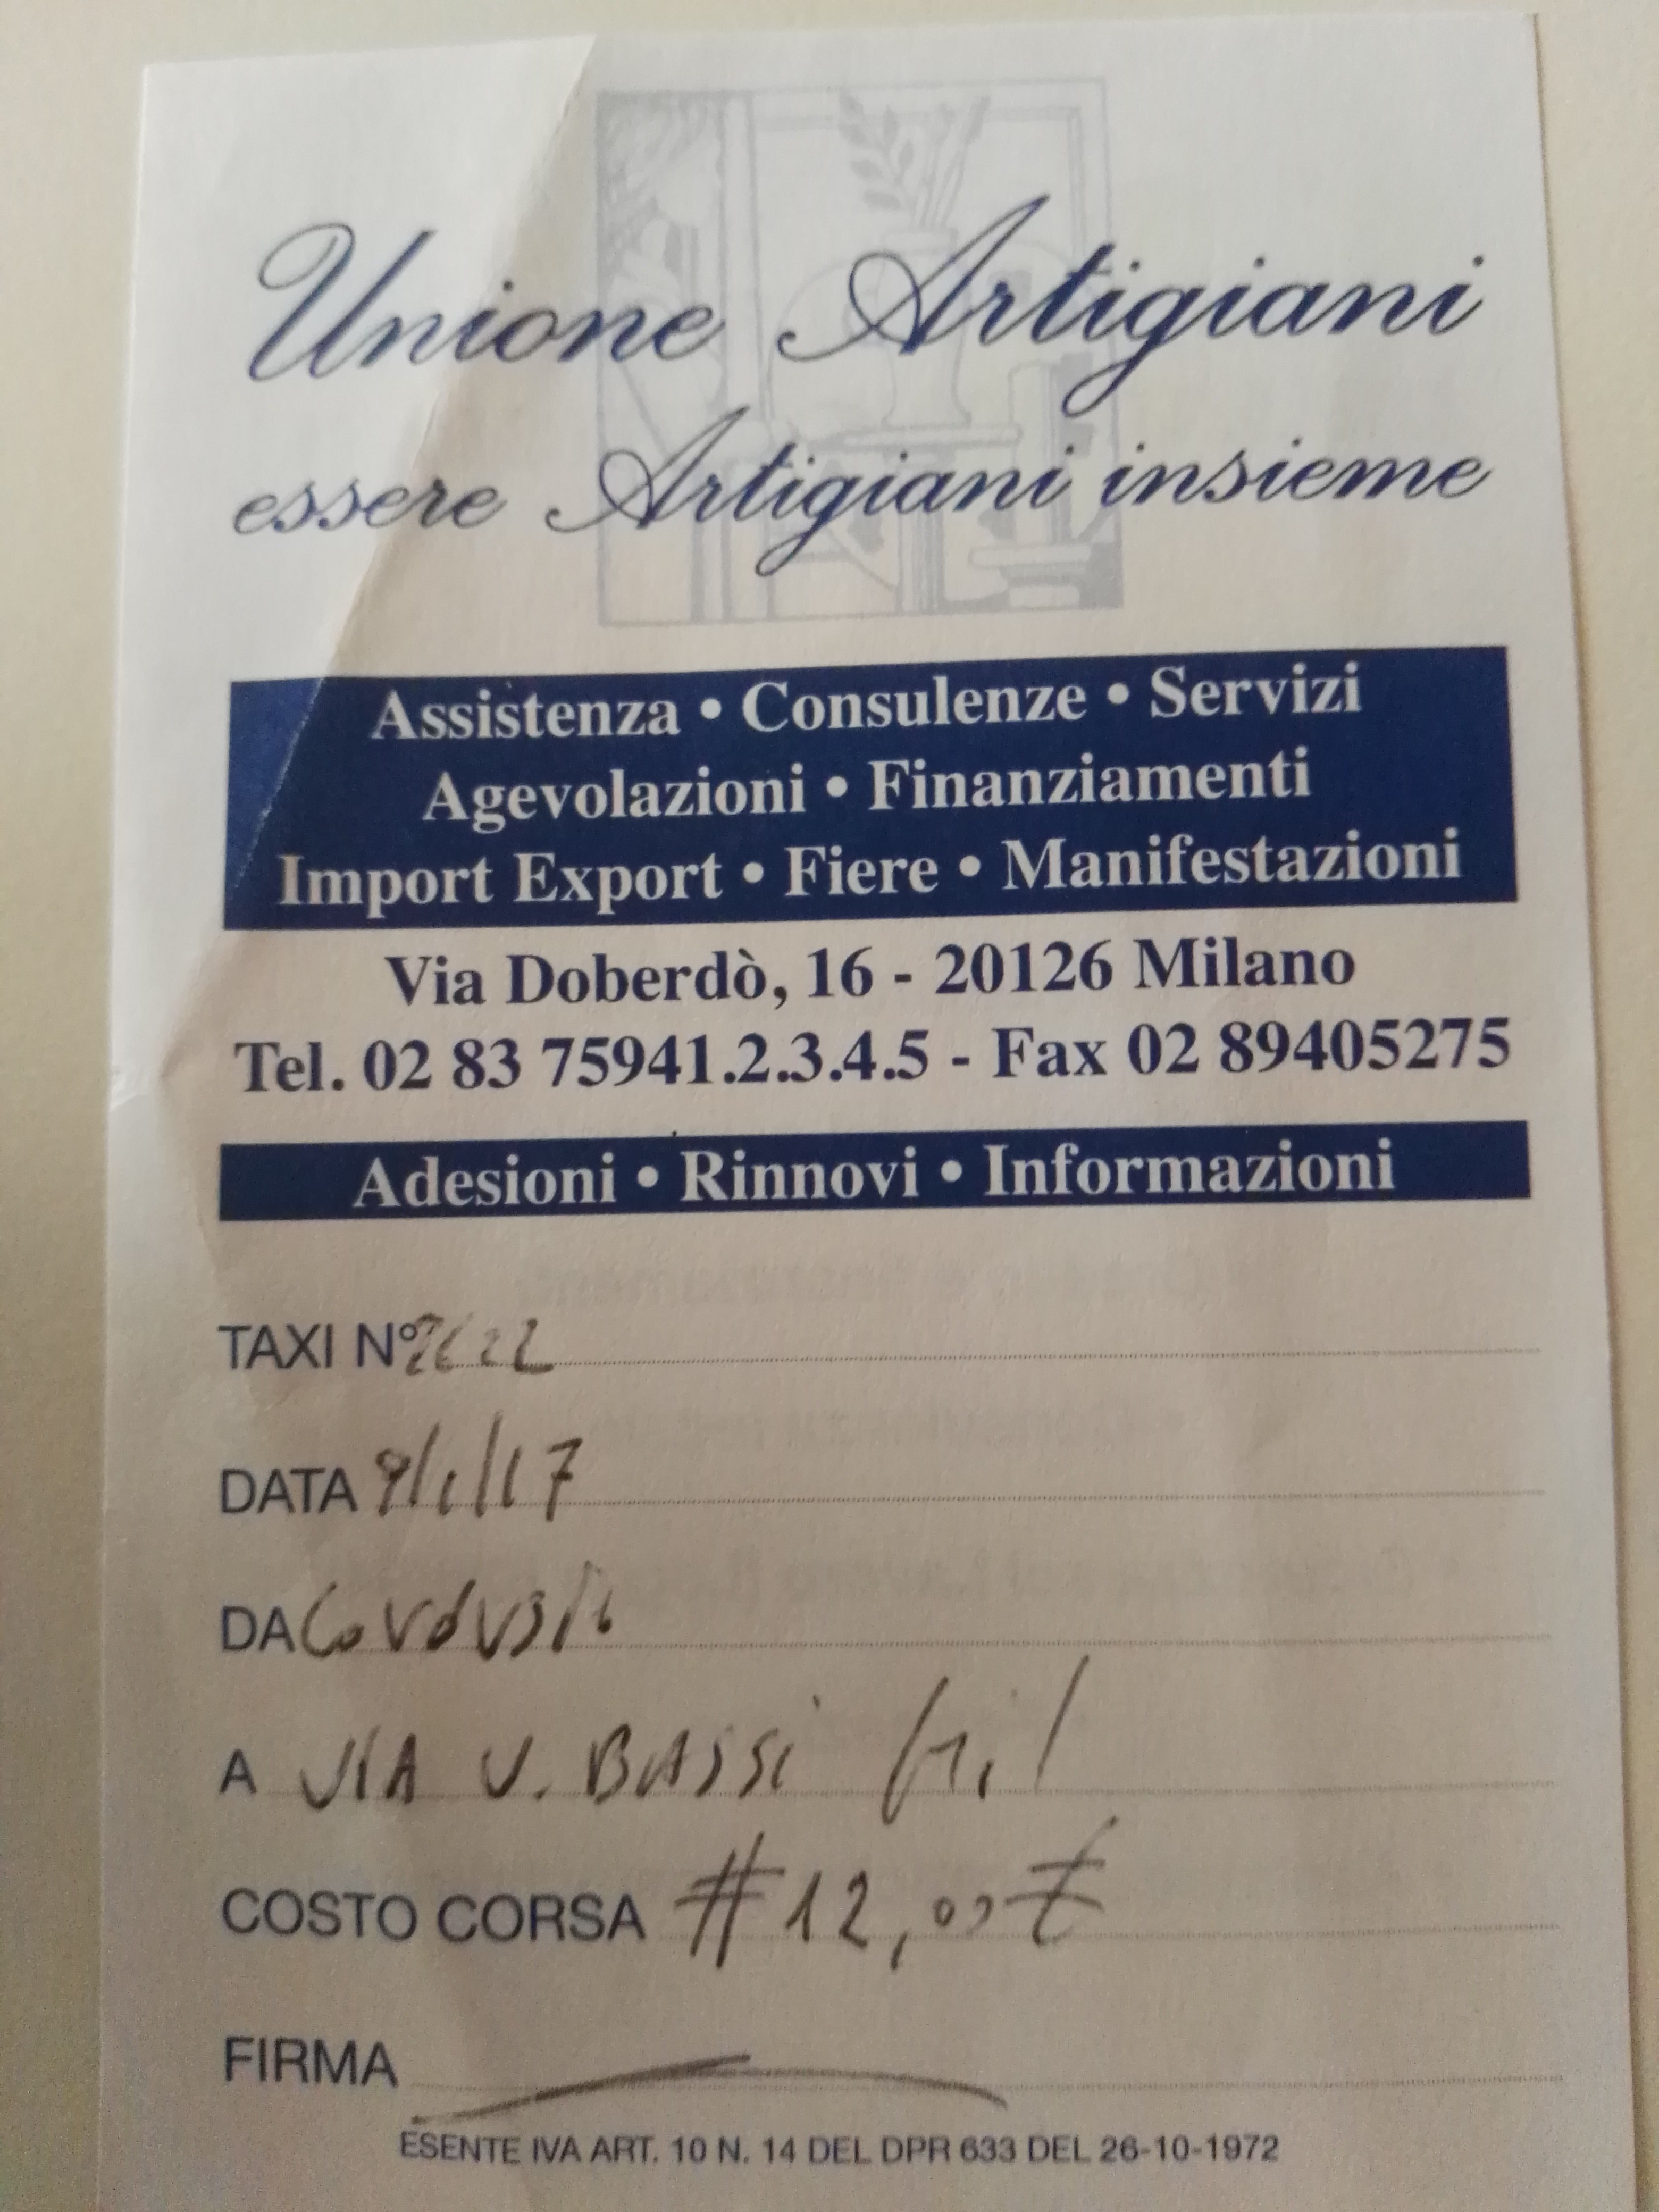 Unione Artigiani
essere Artigiani insieme
Assistenza • Consulenze • Servizi
Agevolazioni • Finanziamenti
Import Export • Fiere • Manifestazioni
Via Doberdò, 16 - 20126 Milano
Tel. 02 83 75941.2.3.4.5 - Fax 02 89405275
Adesioni • Rinnovi • Informazioni
TAXI N°
DATA 9/1/17
DA Cordusio
A VIA U. BASSI
COSTO CORSA # 12,00 €
FIRMA
ESENTE IVA ART. 10 N. 14 DEL DPR 633 DEL 26-10-1972